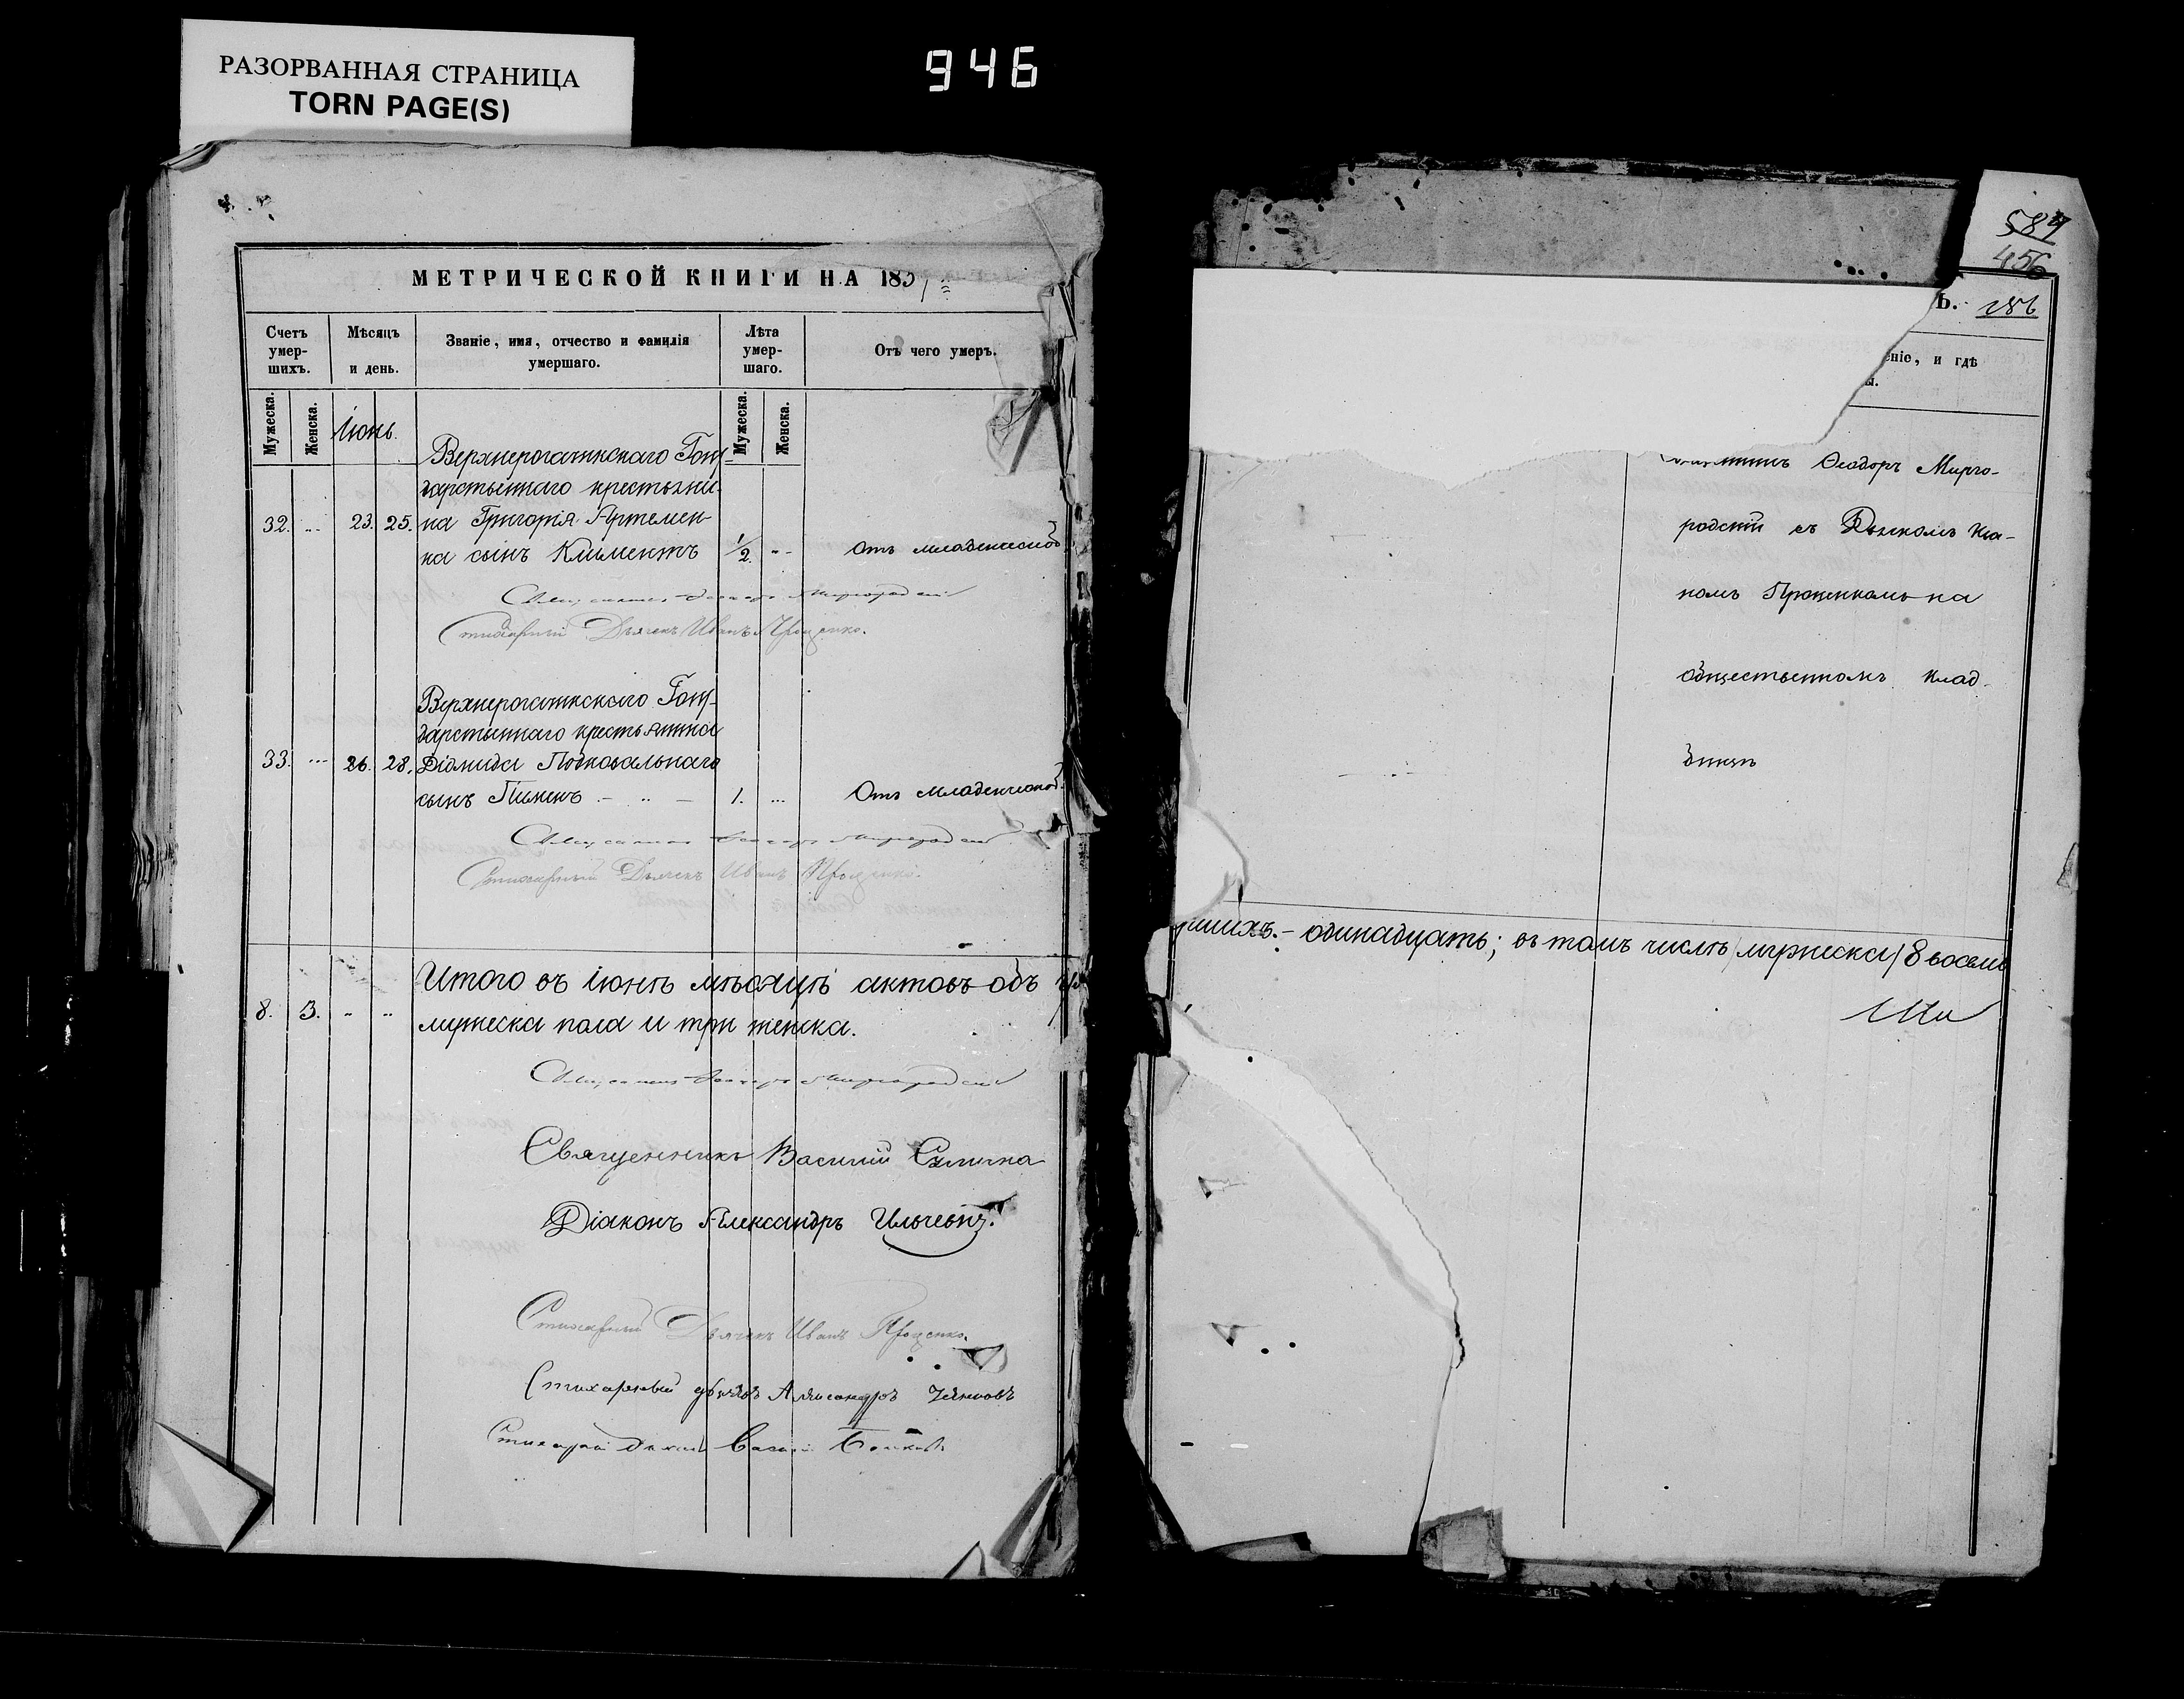 РАЗОРВАННАЯ СТРАНИЦА
TORN PAGE(S)
946
МЕТРИЧЕСКОЙ КНИГИ НА 185
Счетъ умер-шихъ.
Мѣсяцъ и день.
Званіе, имя, отчество и фамилія умершаго.
Лѣта умер-шаго.
Отъ чего умеръ.
Мужеска.
Женска.
Іюнь.
Мужеска.
Женска.
Верхнерогачикскаго Госу-
дарственнаго крестьяни-
32. 23. 25. на Григорія Артемен-
ка сынъ Климентъ 1/2. Отъ младенческой
Священникъ Ѳеодоръ Миргородскій
Стихарный Дьячекъ Иванъ Проценко.
Верхнерогачикскаго Госу-
дарственнаго крестьянина
33. 26. 28. Діомида Подковальнаго
сынъ Пименъ 1. Отъ младенческой
Священникъ Ѳеодоръ Миргородскій
Стихарный Дьячекъ Иванъ Проценко.
Итого въ Іюнѣ мѣсяцѣ актовъ объ
8. 3. мужеска пола и три женска.
Священникъ Ѳеодоръ Миргородскій
Священникъ Василій
Діаконъ Александръ Ильчевичъ.
Стихарный Дьячекъ Иванъ Проценко.
Стихарный дьячекъ Александръ
Стихарный Василій
587
456
Ь. 186
еніе, и гдѣ
ы.
Ѳеодоръ Мирго-
родскій съ Дьячкомъ Ива-
номъ Проценкомъ на
общественномъ клад-
бищѣ
ршихъ.- одинадцать; въ томъ числѣ /мужеска/ 8 восемь